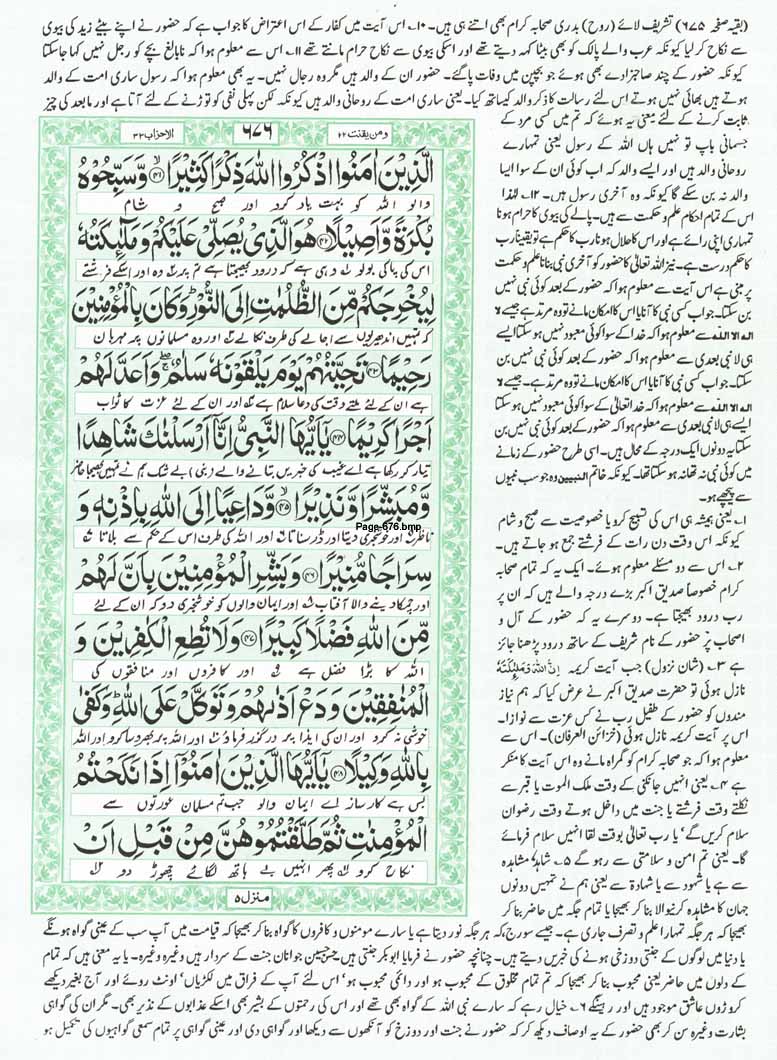 (بقیہ صفحہ ۶۷۵) تشریف لائے (روح) بدری صحابہ کرام بھی اتنے ہی ہیں۔ ۱۰؎ اس آیت میں کفار کے اس اعتراض کا جواب ہے کہ حضور نے اپنے بیٹے زید کی بیوی
سے نکاح کر لیا کیونکہ عرب والے پالک کو بھی بیٹا کہہ دیتے تھے اور اسکی بیوی سے نکاح حرام مانتے تھے ۱۱؎ اس سے معلوم ہوا کہ نابالغ بچے کو رجل نہیں کہا جاسکتا
کیونکہ حضور کے چند صاحبزادے بھی ہوئے جو بچپن میں وفات پاگئے۔ حضور ان کے والد ہیں مگر وہ رجال نہیں۔ یہ بھی معلوم ہوا کہ رسول ساری امت کے والد
ہوتے ہیں بھائی نہیں ہوتے اس لئے رسالت کا ذکر والد کیساتھ کیا۔ یعنی ساری امت کے روحانی والد ہیں کیونکہ لکن پہلی نفی کو توڑنے کے لئے آتا ہے اور مابعد کی چیز
ثابت کرنے کے لئے معنی یہ ہوئے کہ تم میں کسی مرد کے
جسمانی باپ تو نہیں ہاں اللہ کے رسول یعنی تمہارے
روحانی والد ہیں اور ایسے والد کہ اب کوئی ان کے سوا ایسا
والد نہ بن سکے گا کیونکہ وہ آخری رسول ہیں۔ ۱۲؎ لہٰذا
اس کے تمام احکام علم و حکمت سے ہیں۔ پالے کی بیوی کا حرام ہونا
تمہاری اپنی رائے ہے اور اس کا حلال ہونا رب کا حکم ہے تو یقیناً رب
کا حکم درست ہے۔ نیز اللہ تعالیٰ کا حضور کو آخری نبی بنانا علم و حکمت
پر مبنی ہے اس آیت سے معلوم ہوا کہ حضور کے بعد کوئی نبی نہیں بن
سکتا۔ جو اب کسی نبی کا آنا یا اس کا امکان مانے تو وہ مرتد ہے جیسے لا
الہ الا اللہ سے معلوم ہوا کہ خدا کے سوا کوئی معبود نہیں ہو سکتا ایسے
ہی لا نبی بعدی سے معلوم ہوا کہ حضور کے بعد کوئی نبی نہیں بن
سکتا۔ جو اب کسی نبی کا آنا یا اس کا امکان مانے تو وہ مرتد ہے۔ جیسے لا
الہ الا اللہ سے معلوم ہوا کہ خدا تعالیٰ کے سوا کوئی معبود نہیں ہو سکتا
ایسے ہی لا نبی بعدی سے معلوم ہوا کہ حضور کے بعد کوئی نبی نہیں بن
سکتا یہ دونوں ایک درجہ کے محال ہیں۔ اسی طرح حضور کے زمانے
میں کوئی نبی نہ تھا نہ ہو سکتا تھا۔ کیونکہ خاتم النبیین وہ جو سب نبیوں
سے پیچھے ہو۔
۱؎ یعنی ہمیشہ ہی اس کی تسبیح کرو یا خصوصیت سے صبح و شام
کیونکہ اس وقت دن رات کے فرشتے جمع ہو جاتے ہیں۔
۲؎ اس سے دو مسئلے معلوم ہوئے۔ ایک یہ کہ تمام صحابہ
کرام خصوصاً صدیق اکبر بڑے درجہ والے ہیں کہ ان پر
رب درود بھیجتا ہے۔ دوسرے یہ کہ حضور کے آل و
اصحاب پر حضور کے نام شریف کے ساتھ درود پڑھنا جائز
ہے ۳؎ (شان نزول) جب آیت کریمہ اِنَّ اللہَ وَمَلٰٓئِکَتَہٗ
نازل ہوئی تو حضرت صدیق اکبر نے عرض کیا کہ ہم نیاز
مندوں کو حضور کے طفیل رب نے کس عزت سے نوازا۔
اس پر آیت کریمہ نازل ہوئی (خزائن العرفان)۔ اس سے
معلوم ہوا کہ جو صحابہ کرام کو گمراہ مانے وہ اس آیت کا منکر
ہے ۴؎ یعنی انہیں جانکنی کے وقت ملک الموت یا قبر سے
نکلتے وقت فرشتے یا جنت میں داخل ہوتے وقت رضوان
سلام کریں گے، یا رب تعالیٰ بوقت لقا انہیں سلام فرمائے
گا۔ یعنی تم امن و سلامتی سے رہو گے ۵؎ شاہد یا مشاہدہ
سے ہے یا شہود سے یا شہادۃ سے یعنی ہم نے تمہیں دونوں
جہان کا مشاہدہ کرنیوالا بنا کر بھیجا یا تمام جگہ میں حاضر بنا کر
الاحزاب ۳۳
۶۷۶
ومن یقنت ۲۲
الَّذِیْنَ اٰمَنُوا اذْکُرُوا اللہَ ذِکْرًا کَثِیْرًا ﴿۴۱﴾ وَّسَبِّحُوْهُ
والو اللہ کو بہت یاد کرو اور صبح و شام
بُکْرَةً وَّاَصِیْلًا ﴿۴۲﴾ هُوَ الَّذِیْ یُصَلِّیْ عَلَیْکُمْ وَمَلٰٓئِکَتُهٗ
اس کی پاکی بولو ۱؎ وہی ہے کہ درود بھیجتا ہے تم پر ۲؎ وہ اور اسکے فرشتے
لِیُخْرِجَکُمْ مِّنَ الظُّلُمٰتِ اِلَی النُّوْرِ ؕ وَکَانَ بِالْمُؤْمِنِیْنَ
کہ تمہیں اندھیریوں سے اجالے کی طرف نکالے ۳؎ اور وہ مسلمانوں پر مہربان
رَحِیْمًا ﴿۴۳﴾ تَحِیَّتُهُمْ یَوْمَ یَلْقَوْنَهٗ سَلٰمٌ ۖۚ وَّاَعَدَّ لَهُمْ
ہے ان کے لئے ملتے وقت کی دعا سلام ہے ۴؎ اور ان کے لئے عزت کا ثواب
اَجْرًا کَرِیْمًا ﴿۴۴﴾ یٰۤاَیُّهَا النَّبِیُّ اِنَّاۤ اَرْسَلْنٰکَ شَاهِدًا
تیار کر رکھا ہے اے غیب کی خبریں بتانے والے (نبی) بے شک ہم نے تمہیں بھیجا حاضر
وَّمُبَشِّرًا وَّنَذِیْرًا ﴿۴۵﴾ وَّدَاعِیًا اِلَی اللہِ بِاِذْنِهٖ وَ
Page-676.bmp
ناظر ۵؎ اور خوشخبری دیتا اور ڈر سناتا ۶؎ اور اللہ کی طرف اس کے حکم سے بلاتا ۷؎
سِرَاجًا مُّنِیْرًا ﴿۴۶﴾ وَبَشِّرِ الْمُؤْمِنِیْنَ بِاَنَّ لَهُمْ
اور چمکا دینے والا آفتاب ۸؎ اور ایمان والوں کو خوشخبری دو کہ ان کے لئے
مِّنَ اللہِ فَضْلًا کَبِیْرًا ﴿۴۷﴾ وَلَا تُطِعِ الْکٰفِرِیْنَ وَ
اللہ کا بڑا فضل ہے ۹؎ اور کافروں اور منافقوں کی
الْمُنٰفِقِیْنَ وَدَعْ اَذٰىهُمْ وَتَوَکَّلْ عَلَی اللہِ ؕ وَکَفٰی
خوشی نہ کرو اور ان کی ایذا پر درگزر فرماؤ ۱۰؎ اور اللہ پر بھروسا کرو اور اللہ
بِاللہِ وَکِیْلًا ﴿۴۸﴾ یٰۤاَیُّهَا الَّذِیْنَ اٰمَنُوْۤا اِذَا نَکَحْتُمُ
بس ہے کارساز اے ایمان والو جب تم مسلمان عورتوں سے
الْمُؤْمِنٰتِ ثُمَّ طَلَّقْتُمُوْهُنَّ مِنْ قَبْلِ اَنْ
نکاح کرو ۱۱؎ پھر انہیں بے ہاتھ لگائے چھوڑ دو
منزل ۵
بھیجا کہ ہر جگہ تمہارا علم و تصرف جاری ہے۔ جیسے سورج، کہ ہر جگہ نور دیتا ہے یا سارے مومنوں و کافروں کا گواہ بنا کر بھیجا کہ قیامت میں آپ سب کے عینی گواہ ہونگے
یا دنیا میں لوگوں کے جنتی دوزخی ہونے کی خبریں دیتے ہیں۔ چنانچہ حضور نے فرمایا ابوبکر جنتی ہیں حسنین جوانان جنت کے سردار ہیں وغیرہ وغیرہ۔ یا یہ معنی ہیں کہ تمام
کے دلوں میں حاضر یعنی محبوب بنا کر بھیجا کہ تم تمام مخلوق کے محبوب ہو اور دائمی محبوب ہو، اس لئے آپ کے فراق میں لکڑیاں، اونٹ روئے اور آج بغیر دیکھے
کروڑوں عاشق موجود ہیں اور رہینگے ۶؎ خیال رہے کہ سارے نبی اللہ کے گواہ بھی تھے اور اس کی رحمتوں کے بشیر بھی اسکے عذابوں کے نذیر بھی۔ مگر ان کی گواہی
بشارت وغیرہ سن کر تھی حضور کے یہ اوصاف دیکھ کر کہ حضور نے جنت اور دوزخ کو آنکھوں سے دیکھا اور گواہی دی اور عینی گواہی پر تمام سمعی گواہیوں کی تکمیل ہو